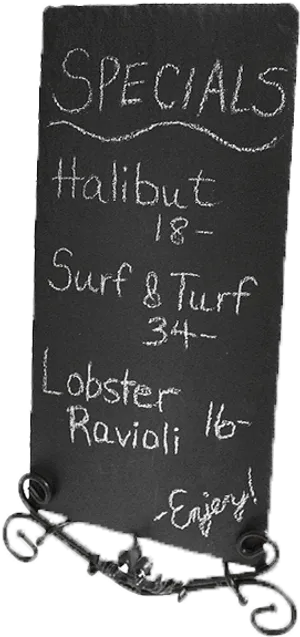 SPECIALS
Halibut
18-
Surf & Turf
34-
Lobster
Ravioli 16-
-Enjoy!